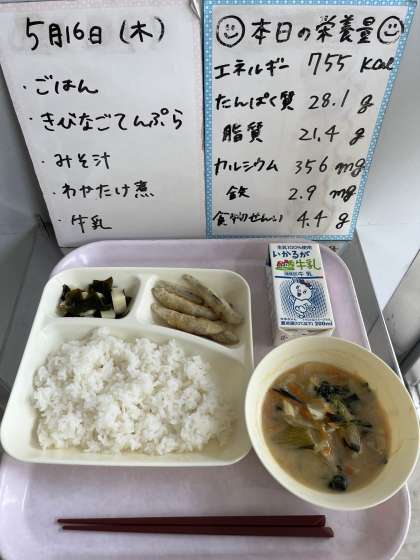 5月16日(木)
・ごはん
・きびなごてんぷら
・みそ汁
・わかたけ煮
・牛乳
本日の栄養量
エネルギー 755 Kcal
たんぱく質 28.1 g
脂質 21.4 g
カルシウム 356 mg
鉄 2.9 mg
食物せんい 4.4 g
いかるが
牛乳
200ml